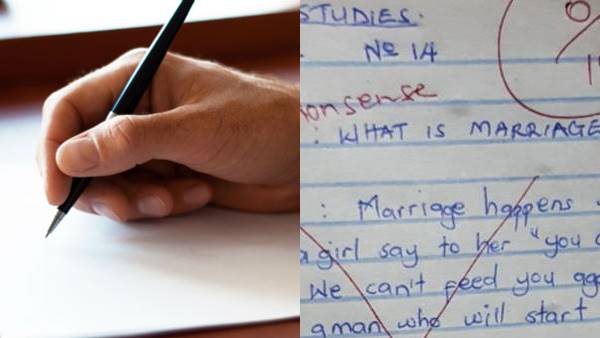 STUDIES.
No 14
onsense
: WHAT IS MARRIAGE
: Marriage happens
a girl say to her "you
We can't feed you aga
aman who will start